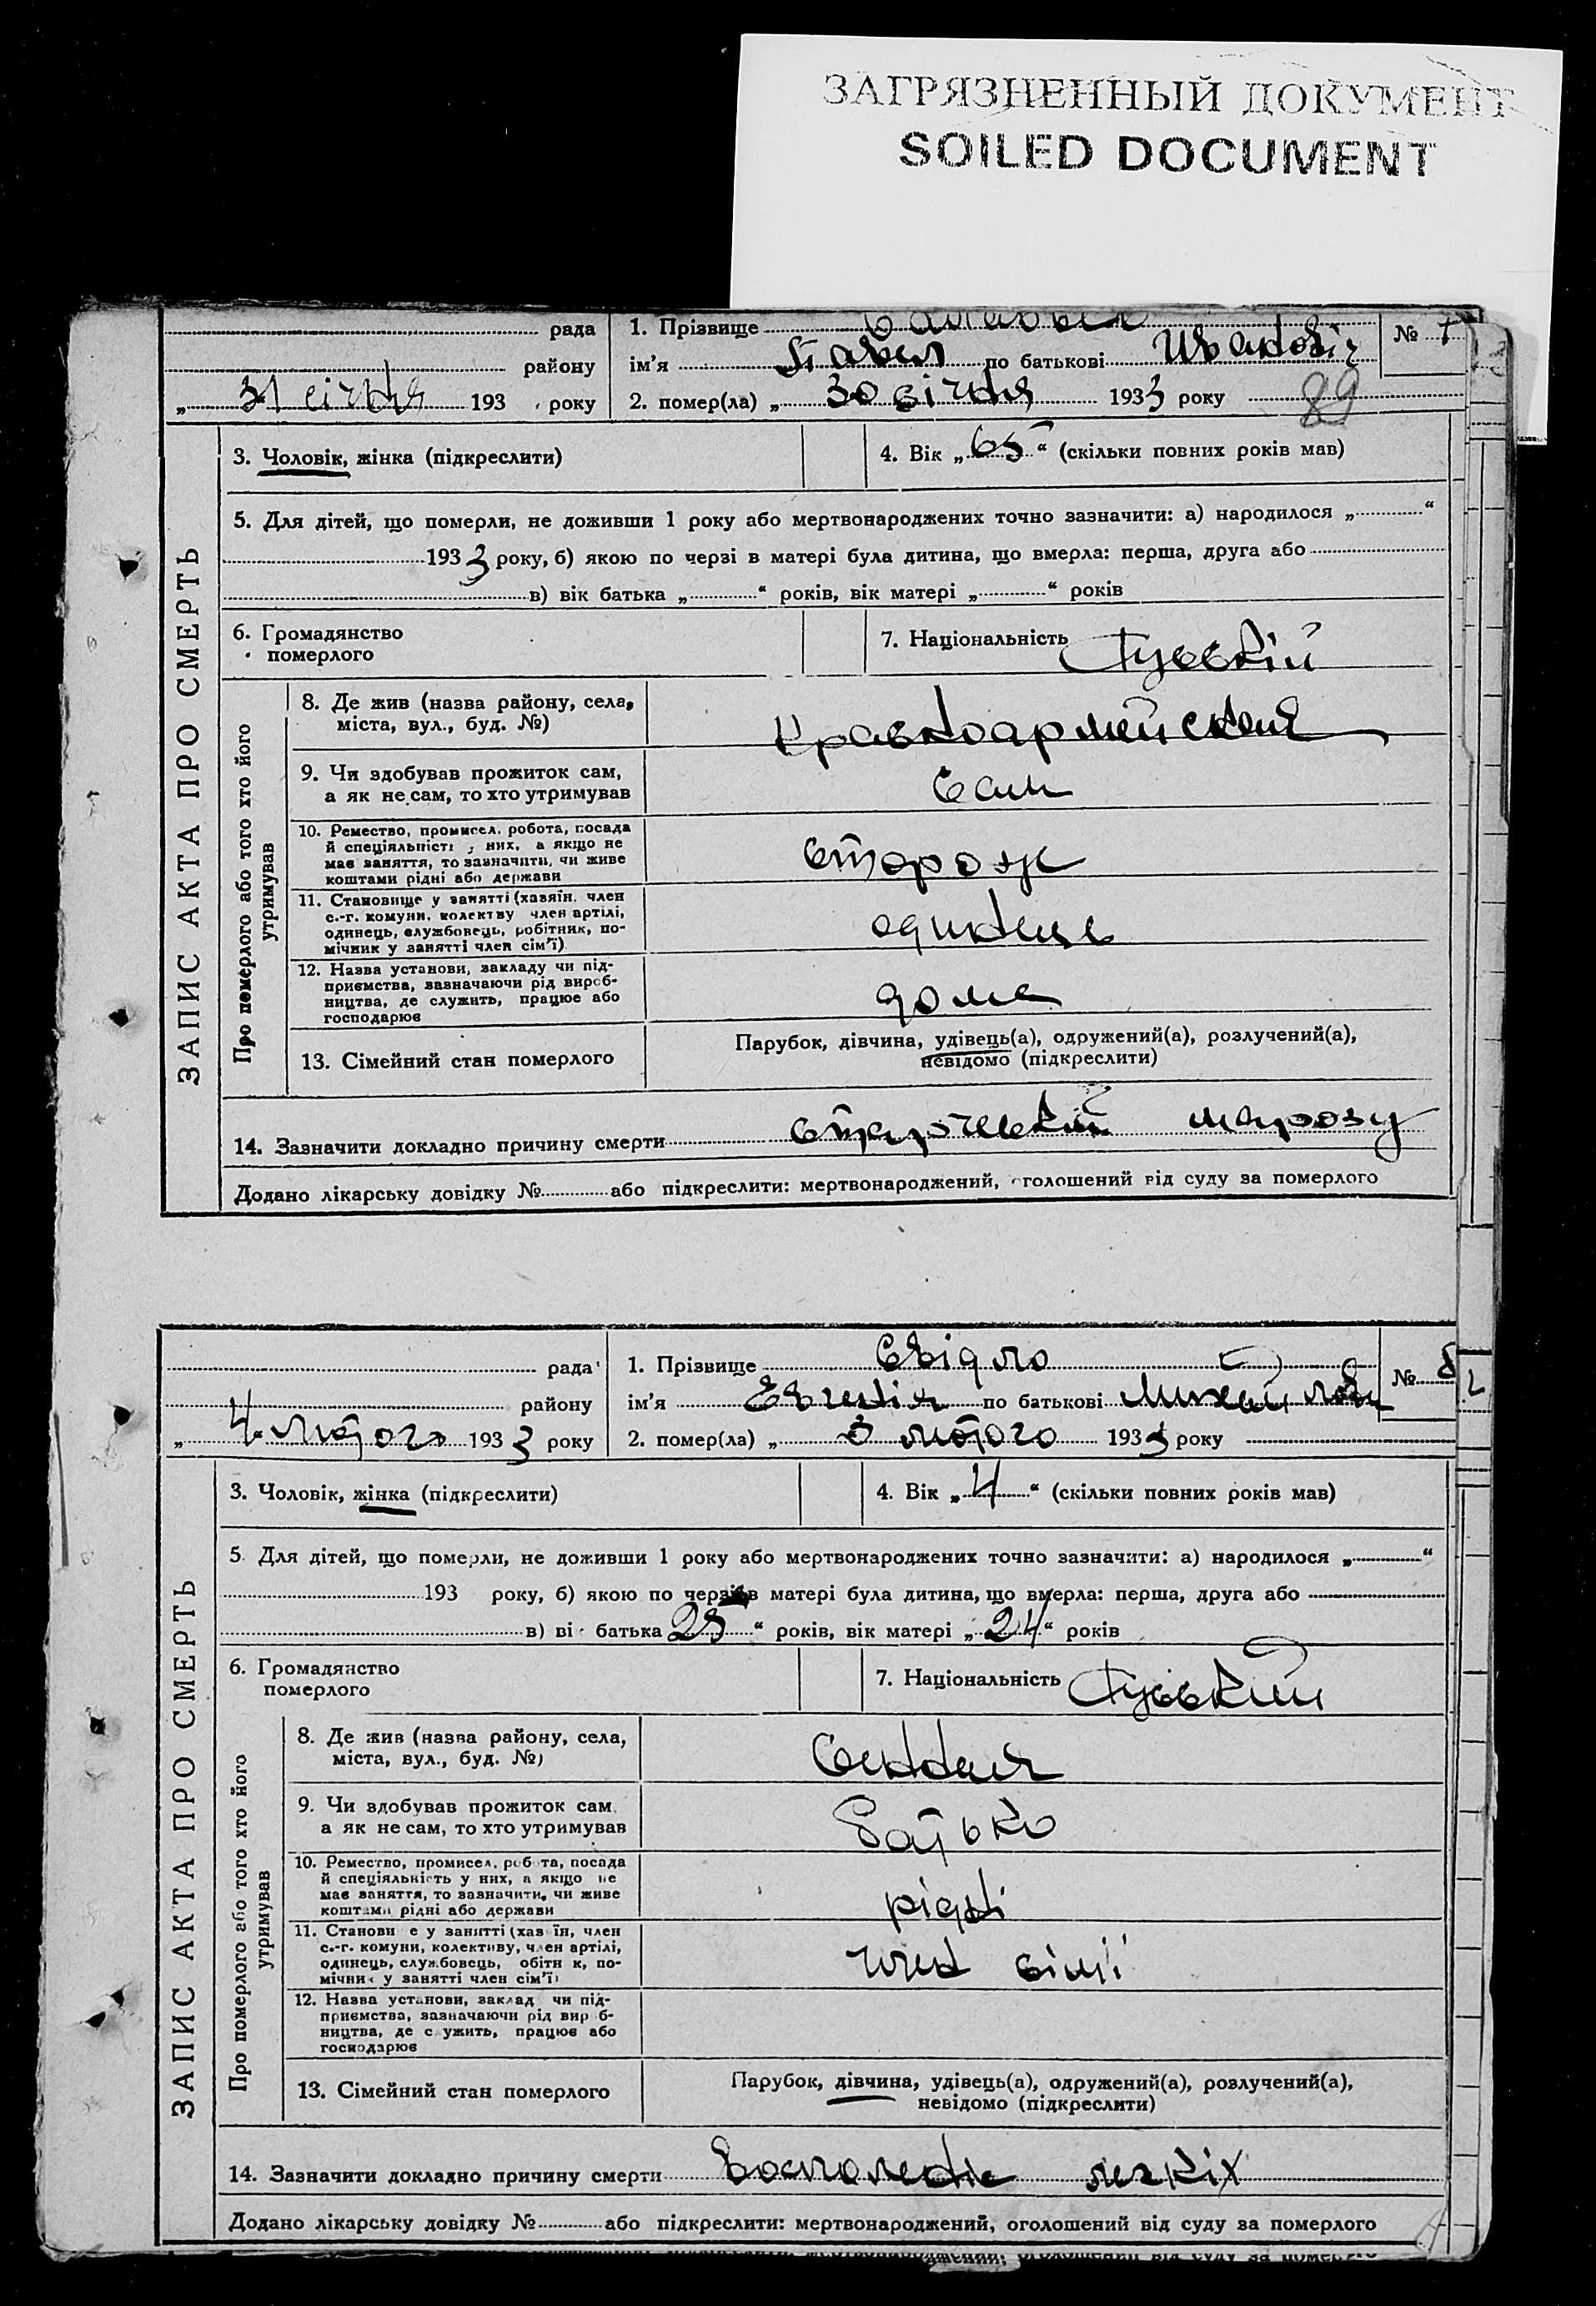 ЗАГРЯЗНЕННЫЙ ДОКУМЕНТ
SOILED DOCUMENT
рада
1. Прізвище
№
району
ім'я Павел по батькові Иванович
„ 31 січня 193 року
2. помер(ла) „ 30 січня 1933 року
89
ЗАПИС АКТА ПРО СМЕРТЬ
3. Чоловік, жінка (підкреслити)
4. Вік „ 65 “ (скільки повних років мав)
5. Для дітей, що померли, не доживши 1 року або мертвонароджених точно зазначити: а) народилося „ “
1933 року, б) якою по черзі в матері була дитина, що вмерла: перша, друга або
в) вік батька „ “ років, вік матері „ “ років
6. Громадянство
померлого
7. Національність Руській
Про померлого або того хто його
утримував
8. Де жив (назва району, села,
міста, вул., буд. №)
Красноармейская
9. Чи здобував прожиток сам,
а як не сам, то хто утримував
Сам
10. Ремество, промисел, робота, посада
й спеціяльність у них, а якщо не
має заняття, то зазначити, чи живе
коштами рідні або держави
сторож
11. Становище у занятті (хазяїн, член
с.-г. комуни, колективу член артілі,
одинець, службовець, робітник, по-
мічник у занятті член сім'ї)
одинець
12. Назва установи, закладу чи під-
приємства, зазначаючи рід вироб-
ництва, де служить, працює або
господарює
дома
13. Сімейний стан померлого
Парубок, дівчина, удівець(а), одружений(а), розлучений(а),
невідомо (підкреслити)
14. Зазначити докладно причину смерти старческій
Додано лікарську довідку № або підкреслити: мертвонароджений, оголошений від суду за померлого
рада
1. Прізвище Свідло
№ 8
району
ім'я Евгенія по батькові
„ 4 лютого 1933 року
2. помер(ла) „ 3 лютого 1933 року
ЗАПИС АКТА ПРО СМЕРТЬ
3. Чоловік, жінка (підкреслити)
4. Вік „ 4 “ (скільки повних років мав)
5. Для дітей, що померли, не доживши 1 року або мертвонароджених точно зазначити: а) народилося „ “
193 року, б) якою по черзі в матері була дитина, що вмерла: перша, друга або
в) вік батька 25 “ років, вік матері „ 24 “ років
6. Громадянство
померлого
7. Національність Руський
Про померлого або того хто його
утримував
8. Де жив (назва району, села,
міста, вул., буд. №)
Сенная
9. Чи здобував прожиток сам
а як не сам, то хто утримував
Батько
10. Ремество, промисел, робота, посада
й спеціяльність у них, а якщо не
має заняття, то зазначити, чи живе
коштами рідні або держави
рідні
11. Становище у занятті (хазяїн, член
с.-г. комуни, колективу, член артілі,
одинець, службовець, робітник, по-
мічник у занятті член сім'ї)
член сімї
12. Назва установи, заклад чи під-
приємства, зазначаючи рід вироб-
ництва, де служить, працює або
господарює
13. Сімейний стан померлого
Парубок, дівчина, удівець(а), одружений(а), розлучений(а),
невідомо (підкреслити)
14. Зазначити докладно причину смерти Восполение легкіх
Додано лікарську довідку № або підкреслити: мертвонароджений, оголошений від суду за померлого